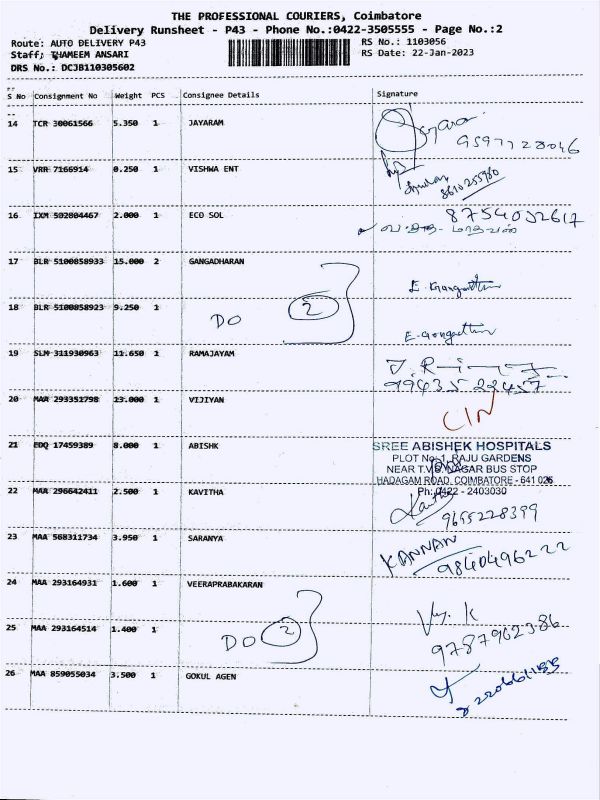 THE PROFESSIONAL COURIERS, Coimbatore
Delivery Runsheet - P43 - Phone No.:0422-3505555 - Page No.:2
Route: AUTO DELIVERY P43
RS No.: 1103056
Staff: THAMEEM ANSARI
RS Date: 22-Jan-2023
DRS No.: DCJB110305602
S No Consignment No Weight PCS Consignee Details Signature
14 TCR 30061566 5.350 1 JAYARAM
9597728046
15 VRR 7166914 0.250 1 VISHWA ENT
8610255980
16 IXM 592804467 2.000 1 ECO SOL 8754032617
17 BLR 5100858933 15.000 2 GANGADHARAN
18 BLR 5100858923 9.250 1
DO 2
19 SLM 311930963 11.650 1 RAMAJAYAM
9943522457
20 MAA 293351798 13.000 1 VIJIYAN
21 EDQ 17459389 8.000 1 ABISHK
SREE ABISHEK HOSPITALS
PLOT No. 1, RAJU GARDENS
NEAR T.V.S. NAGAR BUS STOP
HADAGAM ROAD, COIMBATORE - 641 026
Ph: 0422 - 2403030
22 MAA 296642411 2.500 1 KAVITHA
9655228399
23 MAA 568311734 3.950 1 SARANYA
KANNAN
9840496222
24 MAA 293164931 1.600 1 VEERAPRABAKARAN
25 MAA 293164514 1.400 1
DO 2
9787962386
26 MAA 859055034 3.500 1 GOKUL AGEN